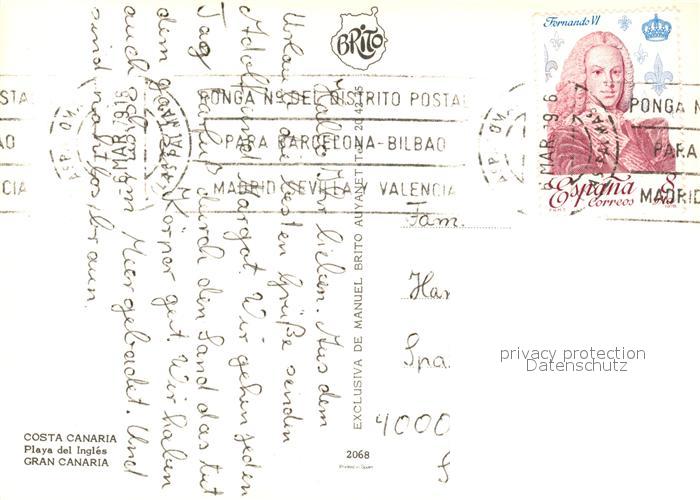 Hallo Ihr lieben. Aus dem
Urlaub die besten Grüße senden
Adolf und Margot. Wir gehen jeden
Tag barfuß durch den Sand das tut
dem ganzen Körper gut. Wir haben
auch schon im Meer gebadet. Und
sind nahtlos braun.
BRITO
EXCLUSIVA DE MANUEL BRITO AUYANET
COSTA CANARIA
Playa del Inglés
GRAN CANARIA
2068
Printed in Spain
PONGA Nº DEL DISTRITO POSTAL
PARA BARCELONA-BILBAO
MADRID SEVILLA Y VALENCIA
Fernando VI
España
Correos
8
PONGA N
PARA
MADRID
Fam.
Ha
Spa
4000
privacy protection
Datenschutz